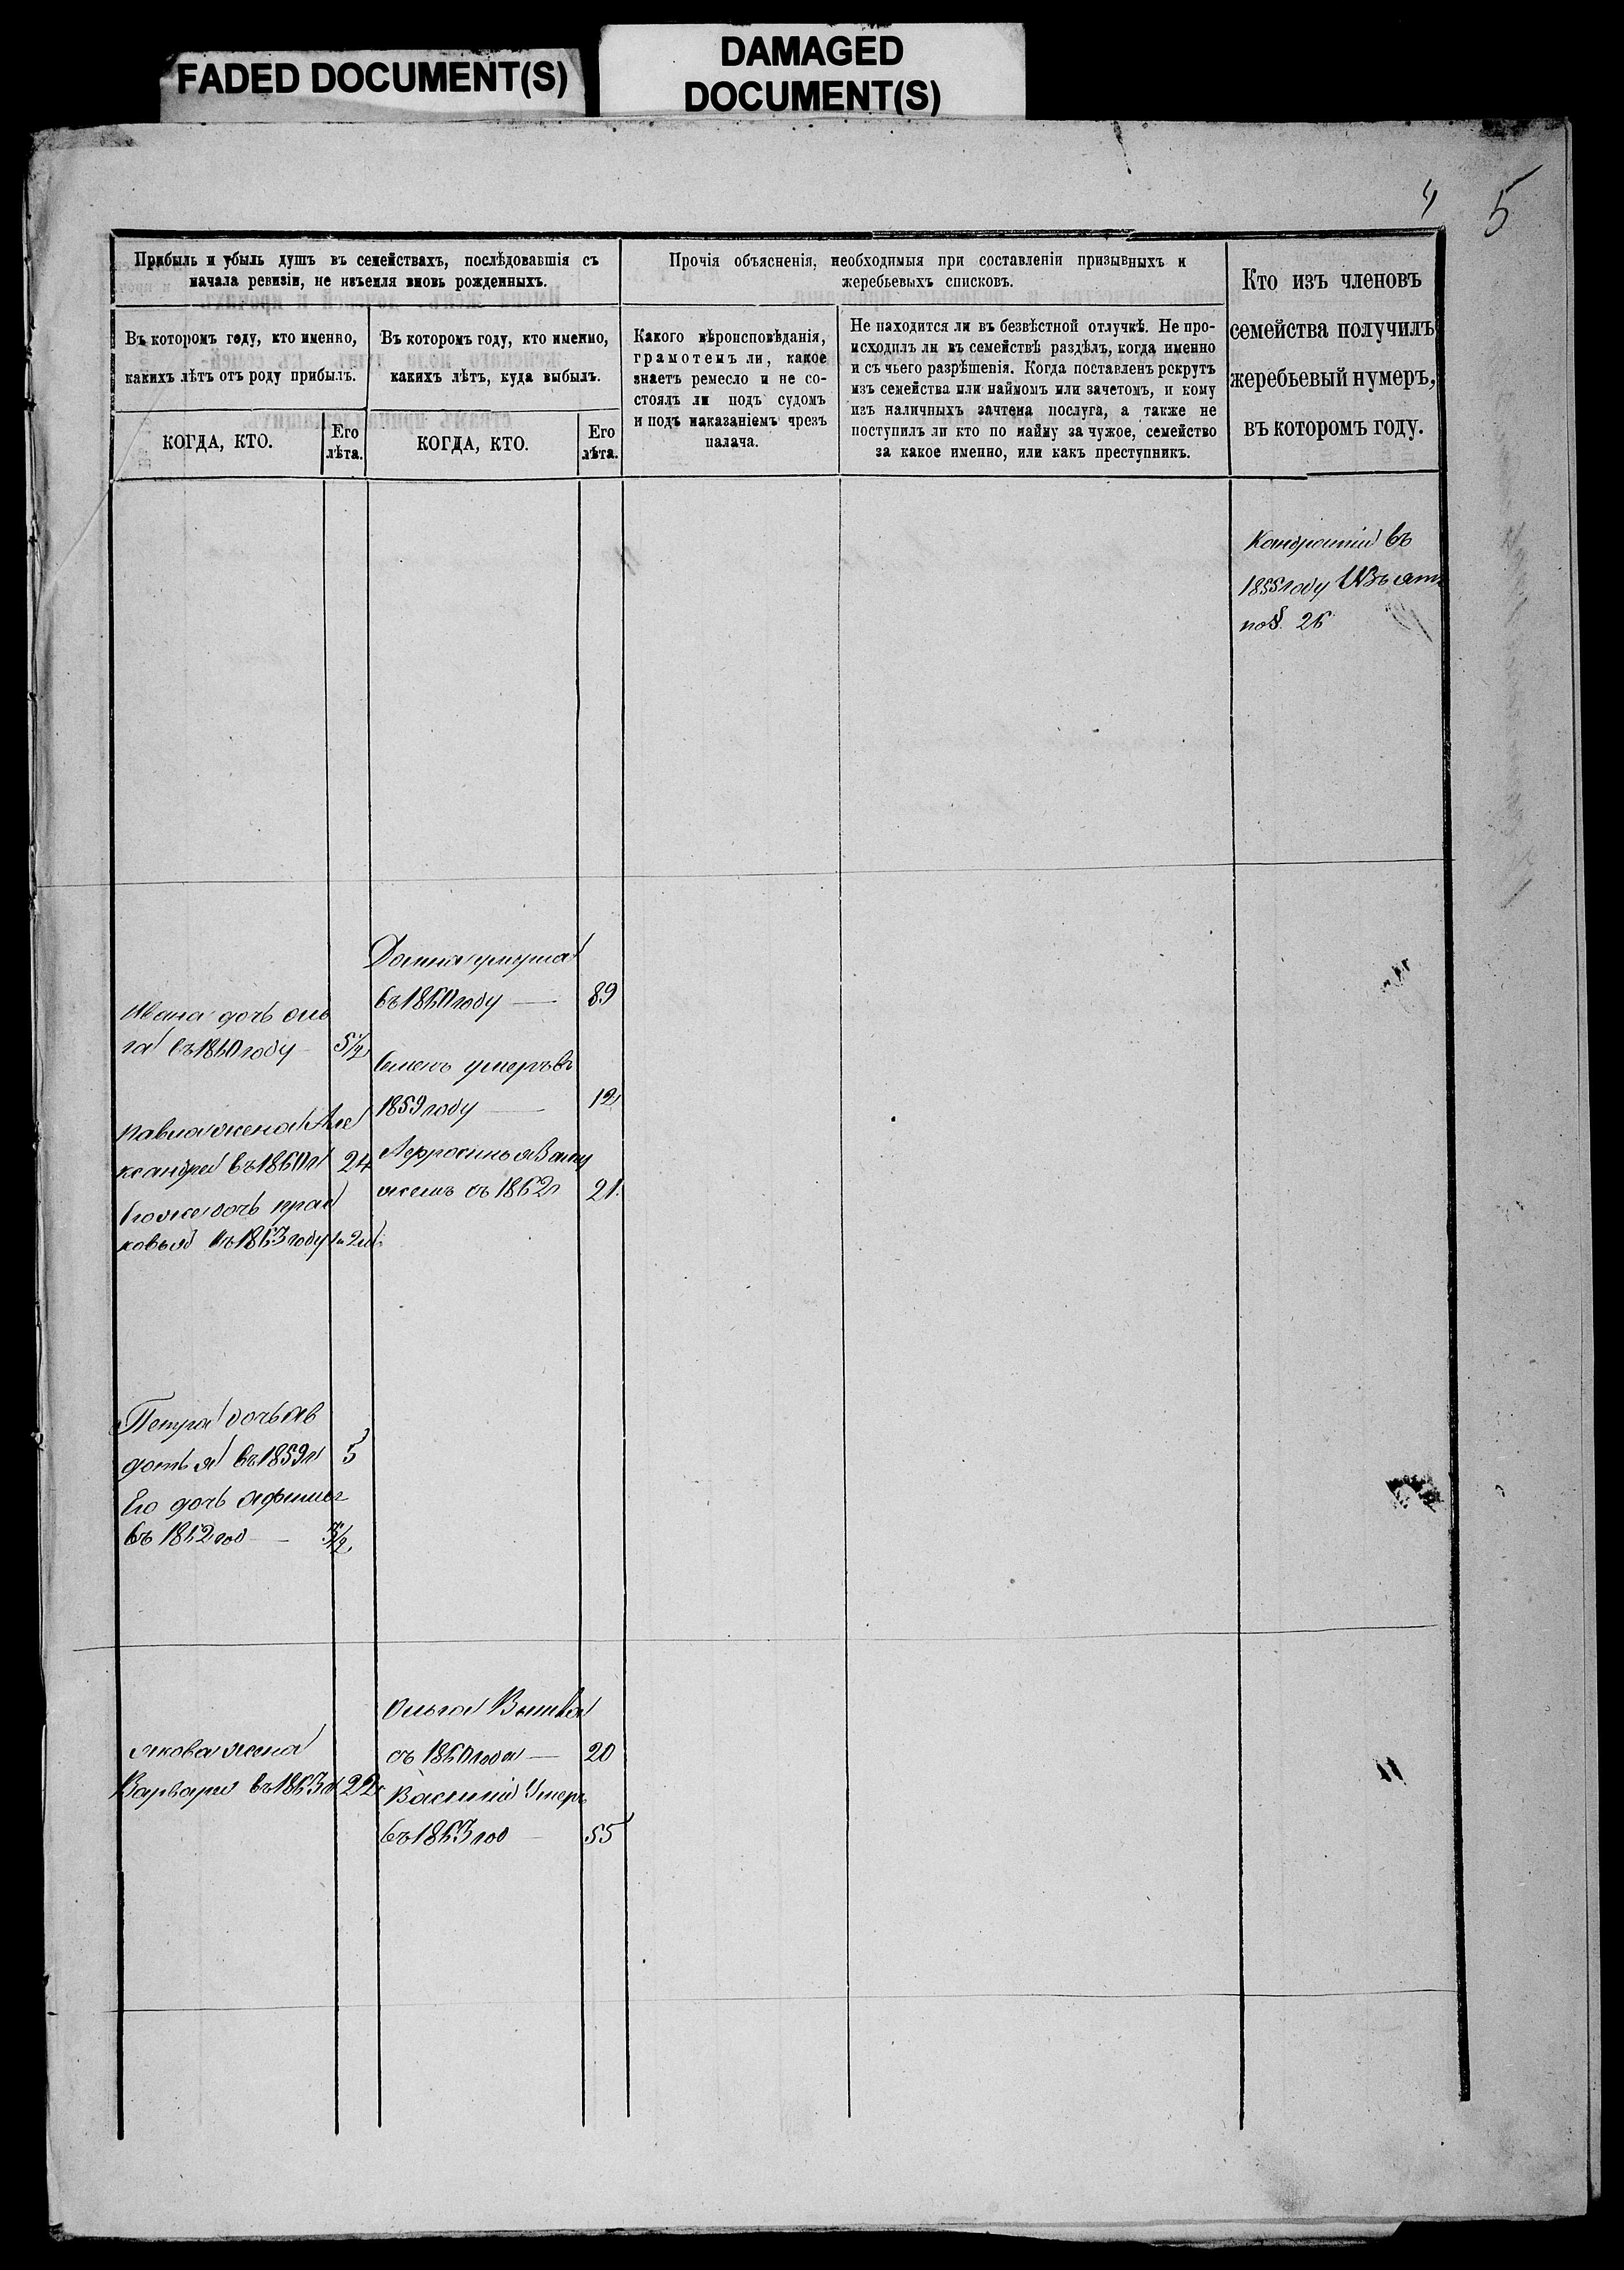 FADED DOCUMENT(S)
DAMAGED
DOCUMENT(S)
4 5
Прибыль и убыль душъ въ семействахъ, послѣдовавшія съ
начала ревизіи, не изъемля вновь рожденныхъ.
Въ которомъ году, кто именно,
какихъ лѣтъ отъ роду прибылъ.
КОГДА, КТО.
Его
лѣта.
Въ которомъ году, кто именно,
какихъ лѣтъ, куда выбылъ.
КОГДА, КТО.
Его
лѣта.
Прочія объясненія, необходимыя при составленіи призывныхъ и
жеребьевыхъ списковъ.
Какого вѣроисповѣданія,
грамотенъ ли, какое
знаетъ ремесло и не со-
стоялъ ли подъ судомъ
и подъ наказаніемъ чрезъ
палача.
Не находится ли въ безвѣстной отлучкѣ. Не про-
исходилъ ли въ семействѣ раздѣлъ, когда именно
и съ чьего разрѣшенія. Когда поставленъ рекрутъ
изъ семейства или наймомъ или зачетомъ, и кому
изъ наличныхъ зачтена послуга, а также не
поступилъ ли кто по найму за чужое, семейство
за какое именно, или какъ преступникъ.
Кто изъ членовъ
семейства получилъ
жеребьевый нумеръ,
въ которомъ году.
Кандратій въ
1855 году Изъят
по §. 26
Домна умерла
въ 1860 году — 89
Ивана дочь оль
га въ 1860 году 5 1/2
Семенъ умеръ въ
1859 году — 12
Павла жена Але
ксандра въ 1860 г 24
Афросинья Вому
жемъ съ 1862 г 21.
дочь прас
ковья въ 1863 году
Петра дочь ав
дотья въ 1859 г 5
Его дочь
въ 1862 год —
Ольга
съ 1860 года — 20
якова жена
Варвара въ 1863 г 22
Василій Умеръ
въ 1863 год — 55